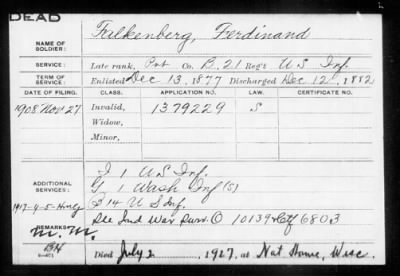 DEAD
NAME OF SOLDIER: Falkenberg, Ferdinand
SERVICE: Late rank, Pvt Co. B. 21 Reg't U S Inf.
TERM OF SERVICE: Enlisted Dec 13, 1877 Discharged Dec 12, 1882
DATE OF FILING. CLASS. APPLICATION NO. LAW. CERTIFICATE NO.
1908 Nov 27 Invalid, 1379229 S
Widow,
Minor,
I 1 U S Inf.
ADDITIONAL SERVICES: G 1 Wash Inf (S)
1917-4-5- B 14 U S Inf.
See Ind War Surv. O 10139 Ctf 6803
REMARKS: M. M.
Died July 2, 1927, at Nat Home, Wisc.